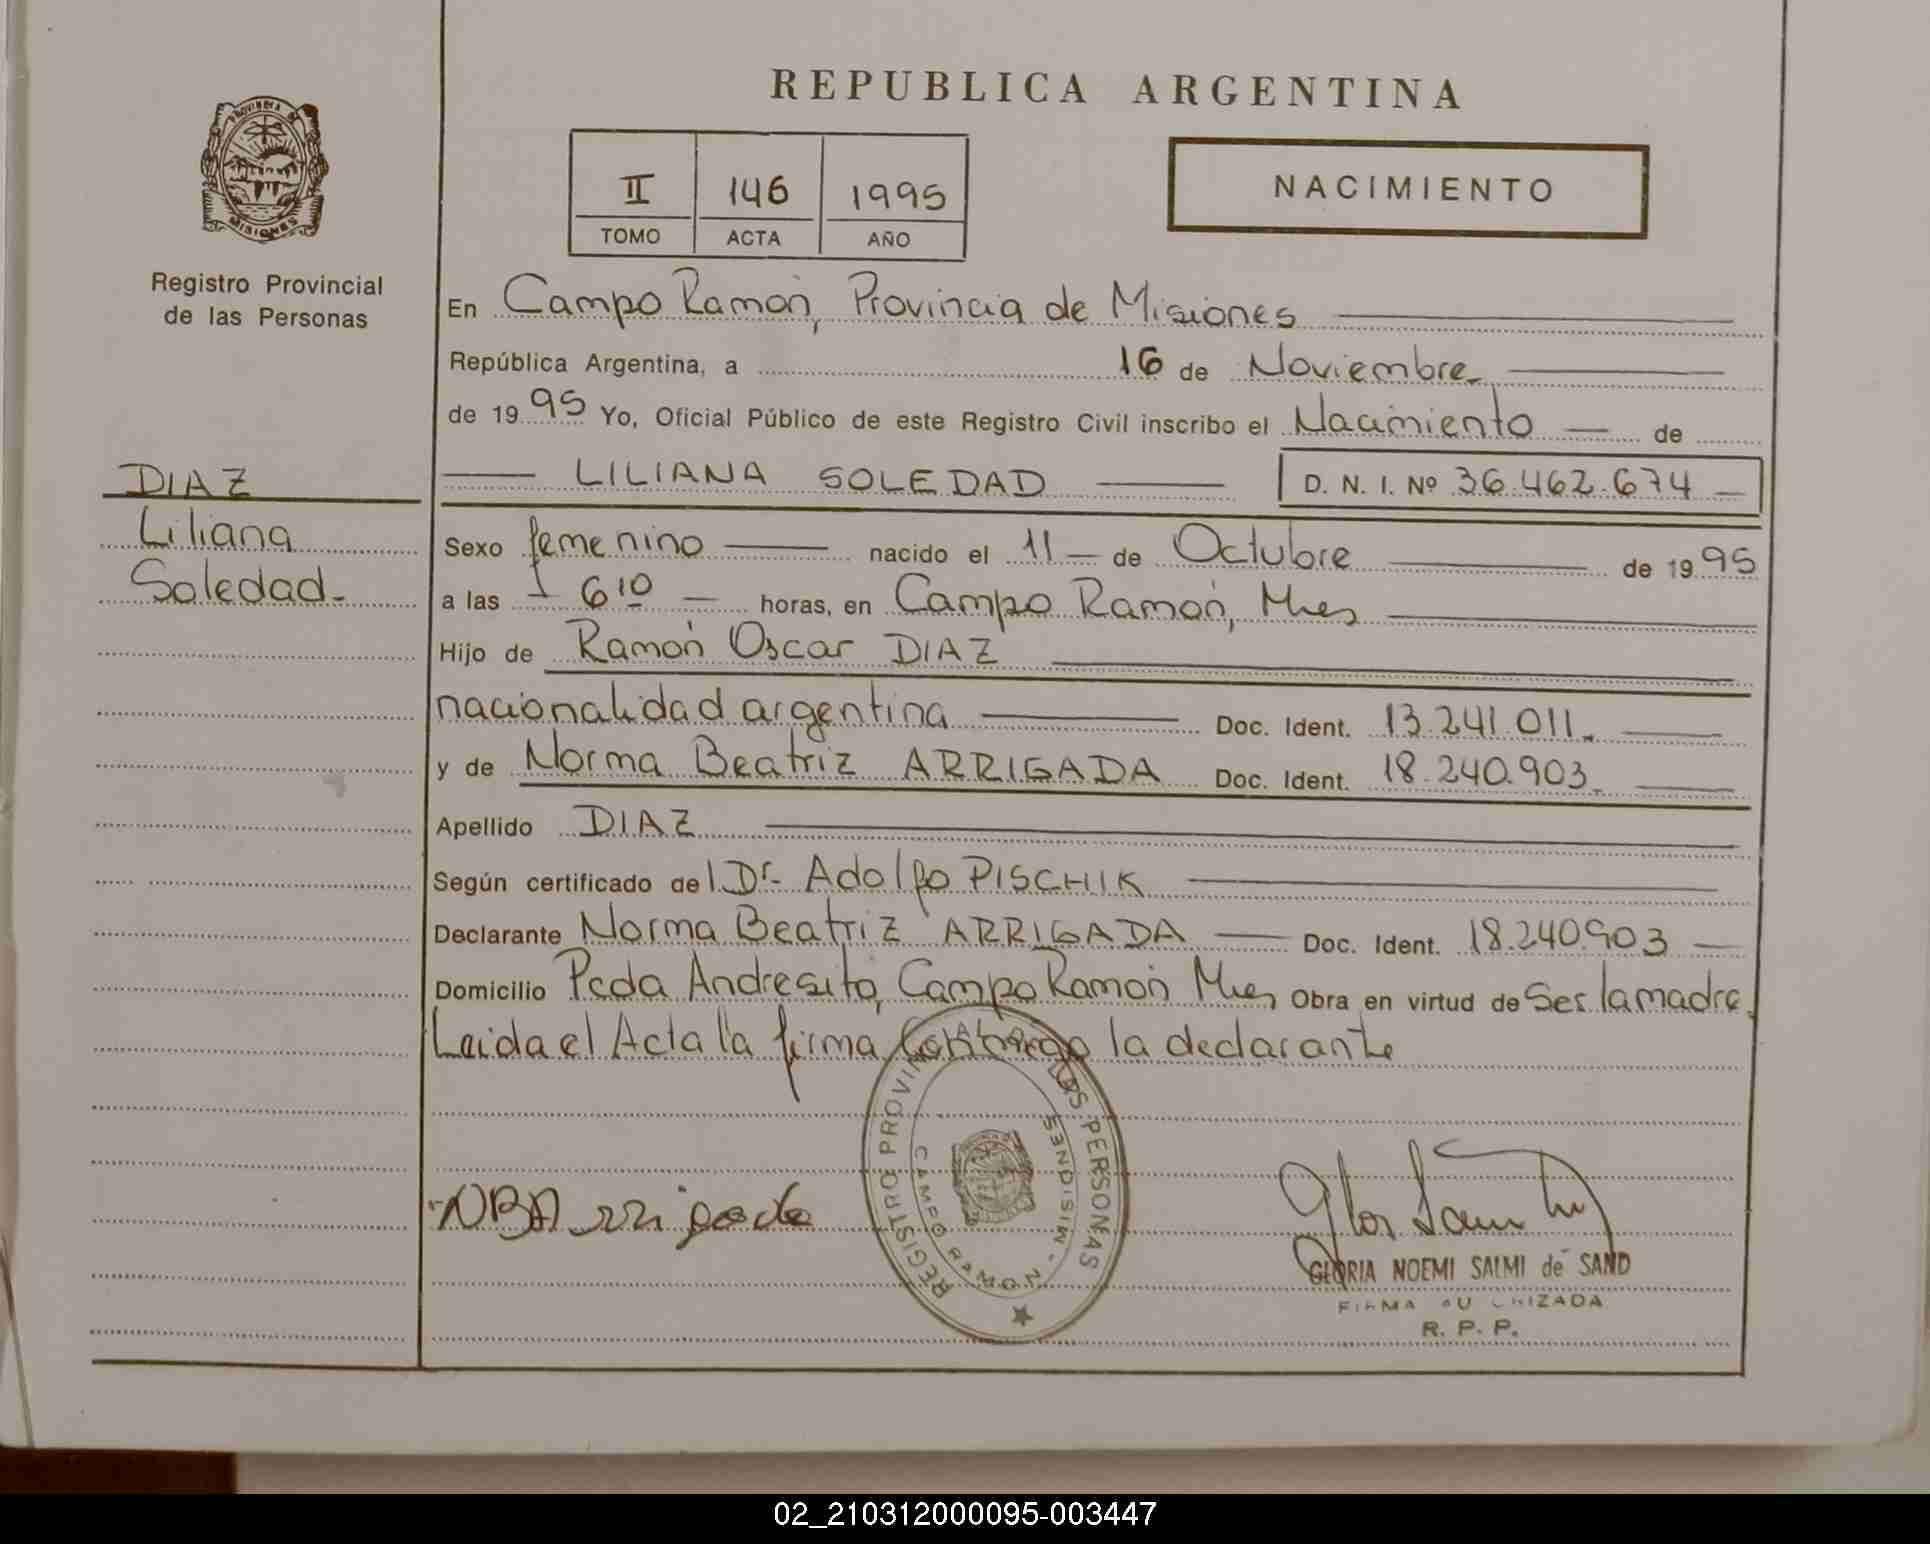 REPUBLICA ARGENTINA
PROVINCIA DE
MISIONES
II 146 1995
TOMO ACTA AÑO
NACIMIENTO
Registro Provincial
de las Personas
En Campo Ramón, Provincia de Misiones
República Argentina, a 16 de Noviembre
de 1995 Yo, Oficial Público de este Registro Civil inscribo el Nacimiento de
LILIANA SOLEDAD D. N. I. Nº 36.462.674
DIAZ
Liliana
Soledad.
Sexo femenino nacido el 11 de Octubre de 1995
a las 6 10 horas, en Campo Ramón, Mnes
Hijo de Ramón Oscar DIAZ
nacionalidad argentina Doc. Ident. 13.241.011.
y de Norma Beatriz ARRIGADA Doc. Ident. 18.240.903.
Apellido DIAZ
Según certificado del Dr. Adolfo PISCHIK
Declarante Norma Beatriz ARRIGADA Doc. Ident. 18.240.903
Domicilio Pcda Andresito, Campo Ramón Mnes Obra en virtud de Ser la madre.
Leida el Acta la firma conmigo la declarante
REGISTRO PROVINCIAL DE LAS PERSONAS
CAMPO RAMON - MISIONES
NBArrigada
GLORIA NOEMI SALMI de SAND
FIRMA AUTORIZADA
R. P. P.
02_210312000095-003447